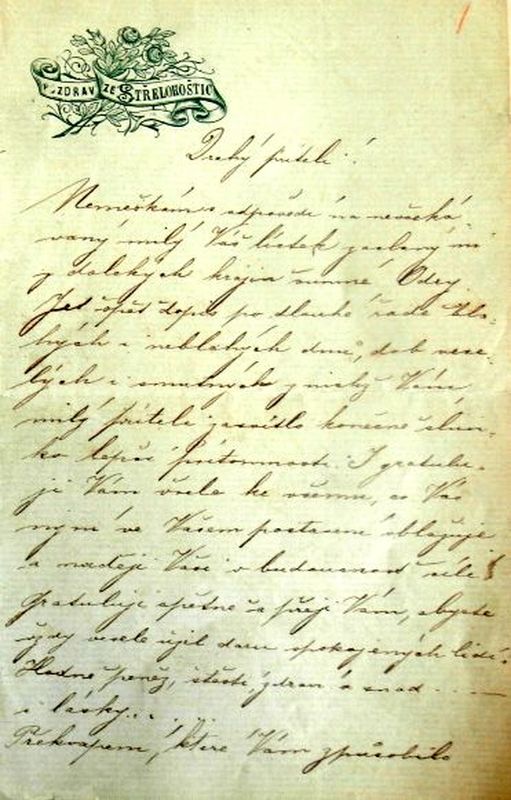 POZDRAV ZE STŘELOHOŠTIC
Drahý příteli!
Nemeškám s odpovědí na neočeká-
vaný milý Váš lístek zaslaný mi
z dalekých krajin šumné Odry.
Jest opět dopis po dlouhé řadě bla-
hých i neblahých dnů, dob vese-
lých i smutných z nichž Vám
milý příteli zasvitlo konečně slun-
ko lepší přítomnosti. I gratulu-
ji Vám vřele ke všemu, co Vás
nyní ve Vašem postavení oblažuje
a naději Vaši v budoucnost sílí!
Gratuluji opětně a přeji Vám, abyste
vždy vesele užil darů spokojených lidí.
Hodně peněz, štěstí, zdraví a snad....
i lásky...
Překvapení, které Vám způsobilo